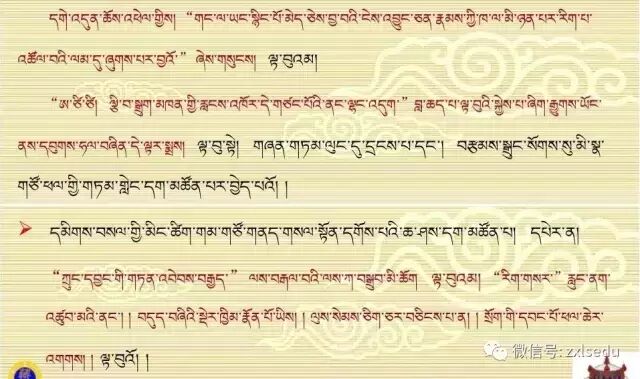 དགེ་འདུན་ཆོས་འཕེལ་གྱིས། “གང་ལ་ཡང་སྙིང་པོ་མེད་ཅེས་བྱ་བའི་ངེས་འབྱུང་ཅན་རྣམས་ཀྱི་ཁ་ལ་མི་ཉན་པར་རིག་པ་
འཚོལ་བའི་ལམ་དུ་ཞུགས་པར་བྱའོ་” ཞེས་གསུངས། ལྟ་བུའམ།
“ཨ་ཙི་ཙི། ལྕི་བ་སྒྲུག་མཁན་གྱི་རླངས་འཁོར་དེ་གཙང་པོའི་ནང་ལྷུང་འདུག་” བླ་ཆད་པ་ལྟ་བུའི་སྐྱེས་པ་ཞིག་རྒྱུགས་ཡོང་
ནས་དབུགས་ཧལ་བཞིན་དེ་ལྟར་སྨྲས། ལྟ་བུ་སྟེ། གཞན་གཏམ་ལུང་དུ་དྲངས་པ་དང་། བརྩམས་སྒྲུང་སོགས་སུ་མི་སྣ་
གཙོ་ཕལ་གྱི་གཏམ་གླེང་དག་མཚོན་པར་བྱེད་པའོ། །
དམིགས་བསལ་གྱི་མིང་ཚིག་གམ་གཙོ་གནད་གསལ་སྟོན་དགོས་པའི་ཆ་ཤས་དག་མཚོན་པ། དཔེར་ན།
“ཀྲུང་དབྱང་གི་གཏན་འབེབས་བརྒྱད་” ལས་བརྒལ་བའི་ལས་ཀ་བསྒྲུབ་མི་ཆོག ལྟ་བུའམ། “རིག་གསར་” རླུང་ནག་
འཚུབ་མའི་ནང་། །བདུད་བཞིའི་སྡེར་ཁྱིམ་རྣོན་པོ་ཡིས། །ལུས་སེམས་ཅིག་ཅར་བཅིངས་པ་ན། །སྲོག་གི་དབང་པོ་ཕལ་ཆེར་
འགགས། །ལྟ་བུའོ། །
微信号: zxlsedu